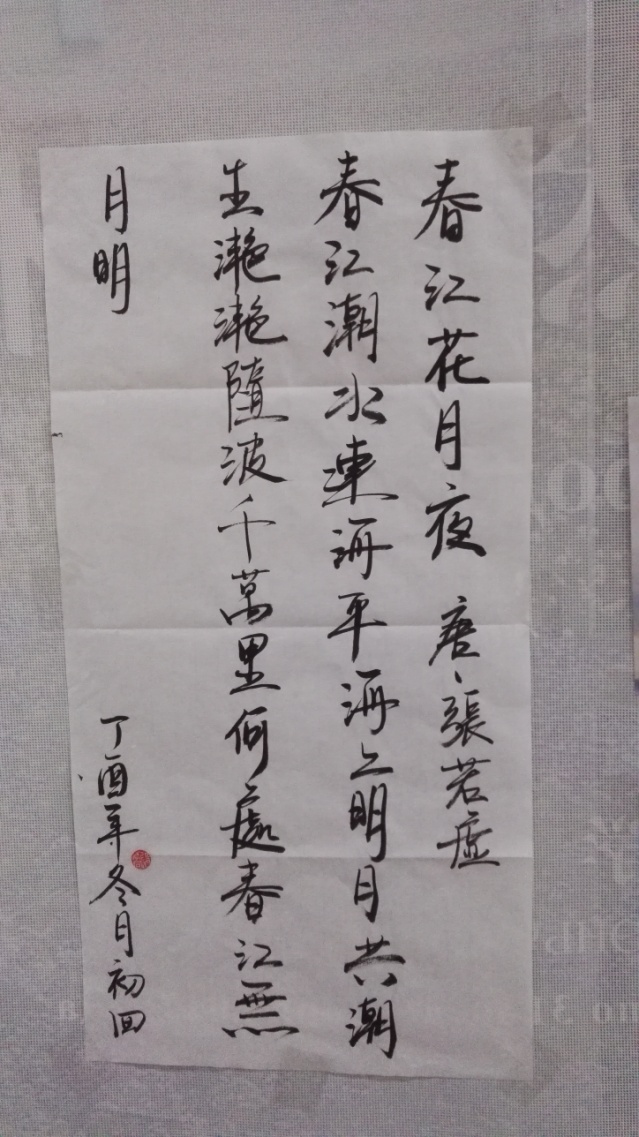 春江花月夜 唐、張若虛
春江潮水連海平海上明月共潮
生灔灔隨波千萬里何處春江無
月明
丁酉年冬月初四